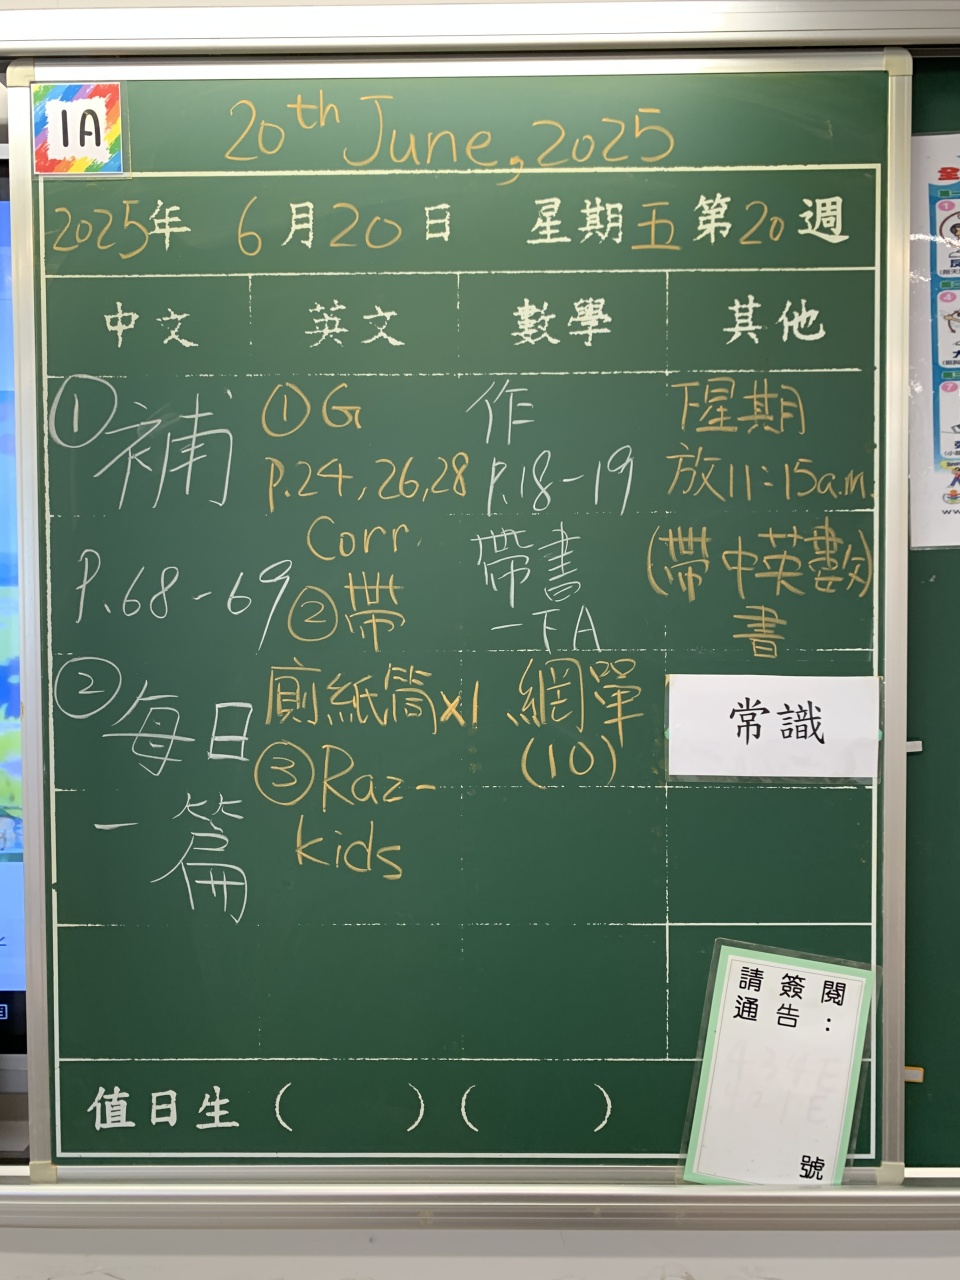 1A
20th June, 2025
2025年 6月20日 星期五 第20週
中文 英文 數學 其他
① 補
P.68-69
② 每日
一篇
① G
P.24, 26, 28
Corr
② 帶
廁紙筒x1
③ Raz-
kids
作
P.18-19
帶書
一下A
網單
(10)
下星期
放11:15a.m.
(帶中英數)
書
常識
請簽閱
通告:
號
值日生 ( ) ( )